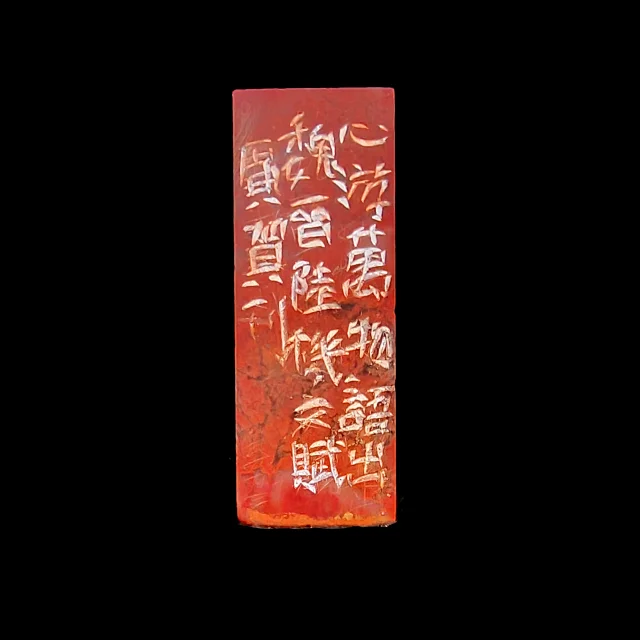 心游萬物語出
魏晉陸機文賦
賀刊